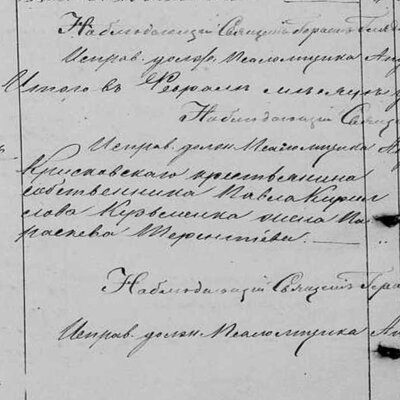 Наблюдающій Священ. Герас
Исправ. должн. Псаломщика Ан
Итого въ Февралѣ мѣсяцѣ у
Наблюдающій Свящ
Исправ. должн. Псаломщика А
Крисковскаго крестьянина
собственника Павла Кирил
лова Кузьменка жена Па
раскева Терентіева.
Наблюдающій Священ. Гера
Исправ. должн. Псаломщика Ан